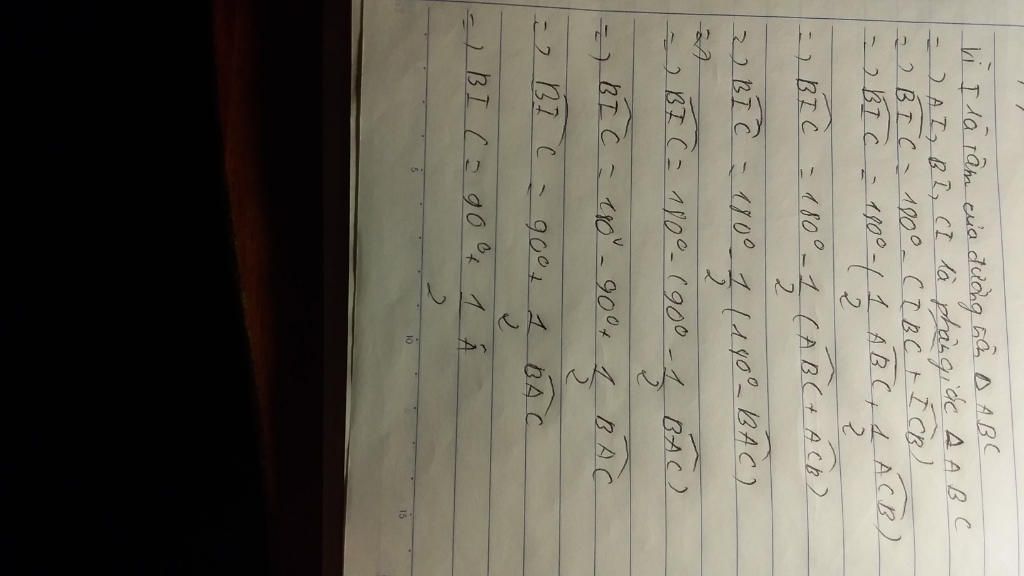 Vì I là tâm của đường tròn Δ ABC
=> AI, BI, CI là phân giác Δ ABC
=> BIC = 180° - (IBC + ICB)
=> BIC = 180° - (1/2 ABC + 1/2 ACB)
=> BIC = 180° - 1/2 (ABC + ACB)
=> BIC = 180° - 1/2 (180° - BAC)
=>
=> BIC = 180° - (90° - 1/2 BAC)
=> BIC = 180° - 90° + 1/2 BAC
=> BIC = 90° + 1/2 BAC
=> BIC = 90° + 1/2 Â
5 10 15